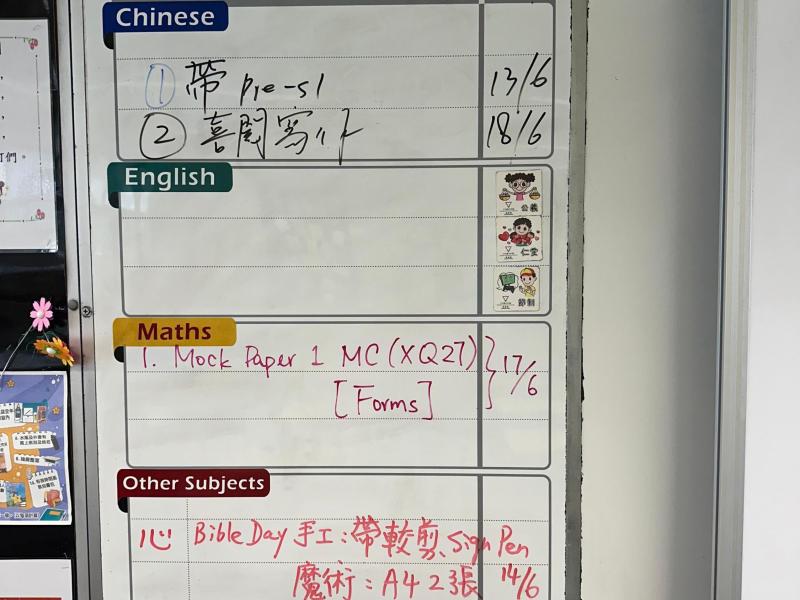 Chinese
① 帶 pre-s1 13/6
② 喜閱寫作 18/6
English
公義
仁愛
節制
Maths
1. Mock Paper 1 MC (XQ27) } 17/6
[Forms]
Other Subjects
心 Bible Day 手工：帶較剪、Sign Pen
魔術：A4 2張 14/6
們。